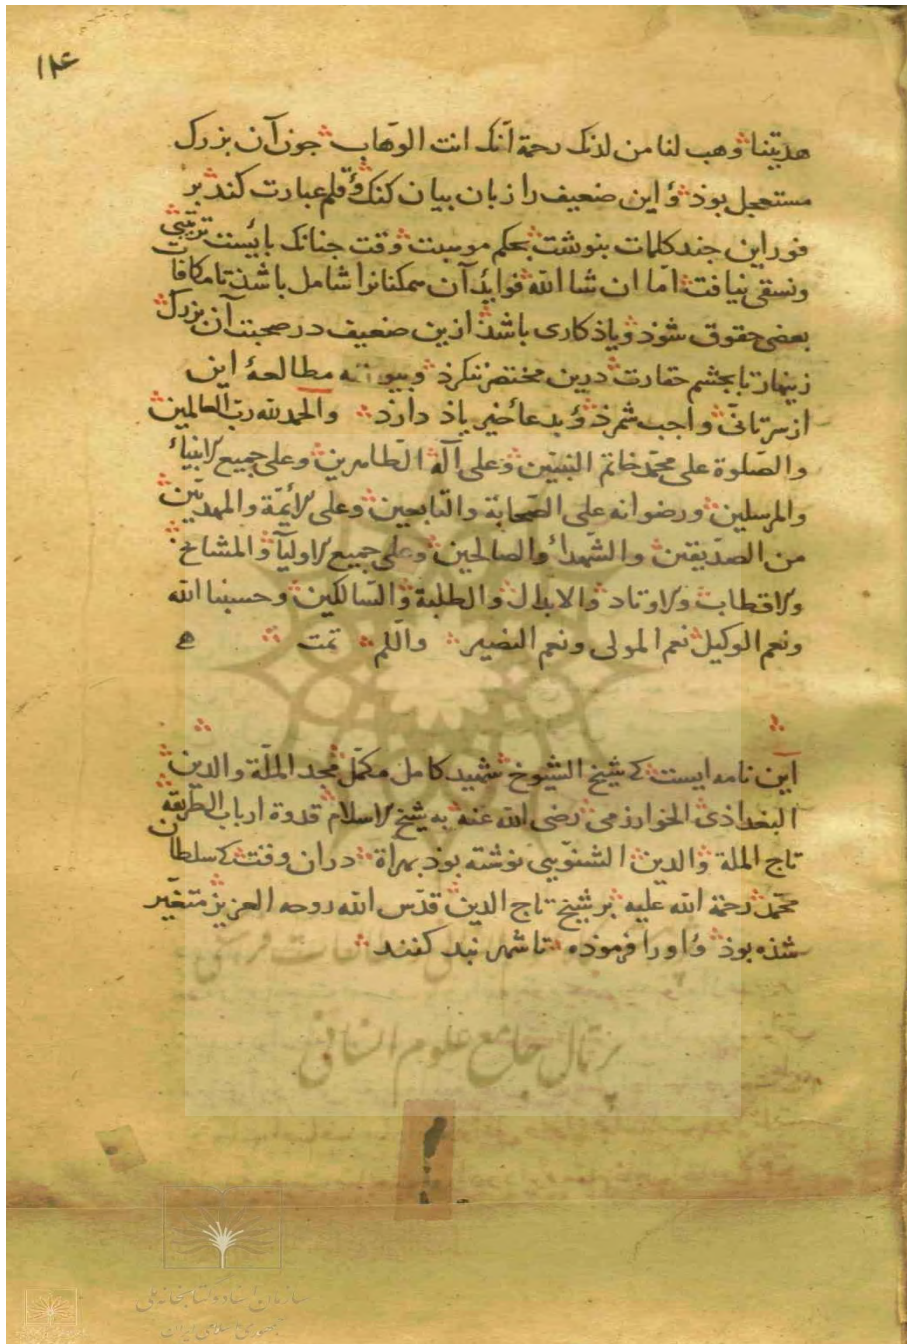 ۱۱۴
هدیتنا وهب لنا من لدنک رحمة انّک انت الوّهاب جون آن بزرک
مستعجل بوذ و این ضعیف را زبان بیان کنک و قلم عبارت کند بر
فور این جند کلمات بنوشت بحکم وقت جنانک بایست ترتیبی
ونسقی نیافت امّا ان شا الله فواید آن ممکنانرا شامل باشذ تا مکافات
بعضی حقوق شوذ و یاذکاری باشذ ازین ضعیف در صحبت آن بزرک
زینهار تا بجشم حقارت درین مختصر ننکرذ و مطالعهٔ این
از سر تانّی واجب شمرذ و بدعاء خیر یاذ دارذ والحمد لله ربّ العالمین
والصّلوة علی محمّد خاتم النبیّین وعلی آله الطّاهرین وعلی جمیع الانبیاء
والمرسلین ورضوانه علی الصّحابة والتّابعین وعلی الائمّة والمهدیّین
من الصدّیقین والشّهداء والصالحین وعلی جمیع الاولیآ والمشایخ
والاقطاب والاوتاد والابدال والطلبة والسّالکین وحسبنا الله
ونعم الوکیل نعم المولی ونعم النصیر تمت
این نامه ایست که شیخ الشیوخ شهید کامل مکمّل مجد الملّة والدین
البغداذی الخوارزمی رضی الله عنه به شیخ الاسلام قدوة ارباب الطریقه
تاج الملة والدین نوشته بوذ بهراة دران وقت که سلطان
محمّد رحمة الله علیه بر شیخ تاج الدین قدّس الله روحه العزیز متغیّر
شذه بوذ و او را فرموذه تا شهر بند کنند
پرتال جامع علوم انسانی
سازمان اسناد و کتابخانه ملی
جمهوری اسلامی ایران